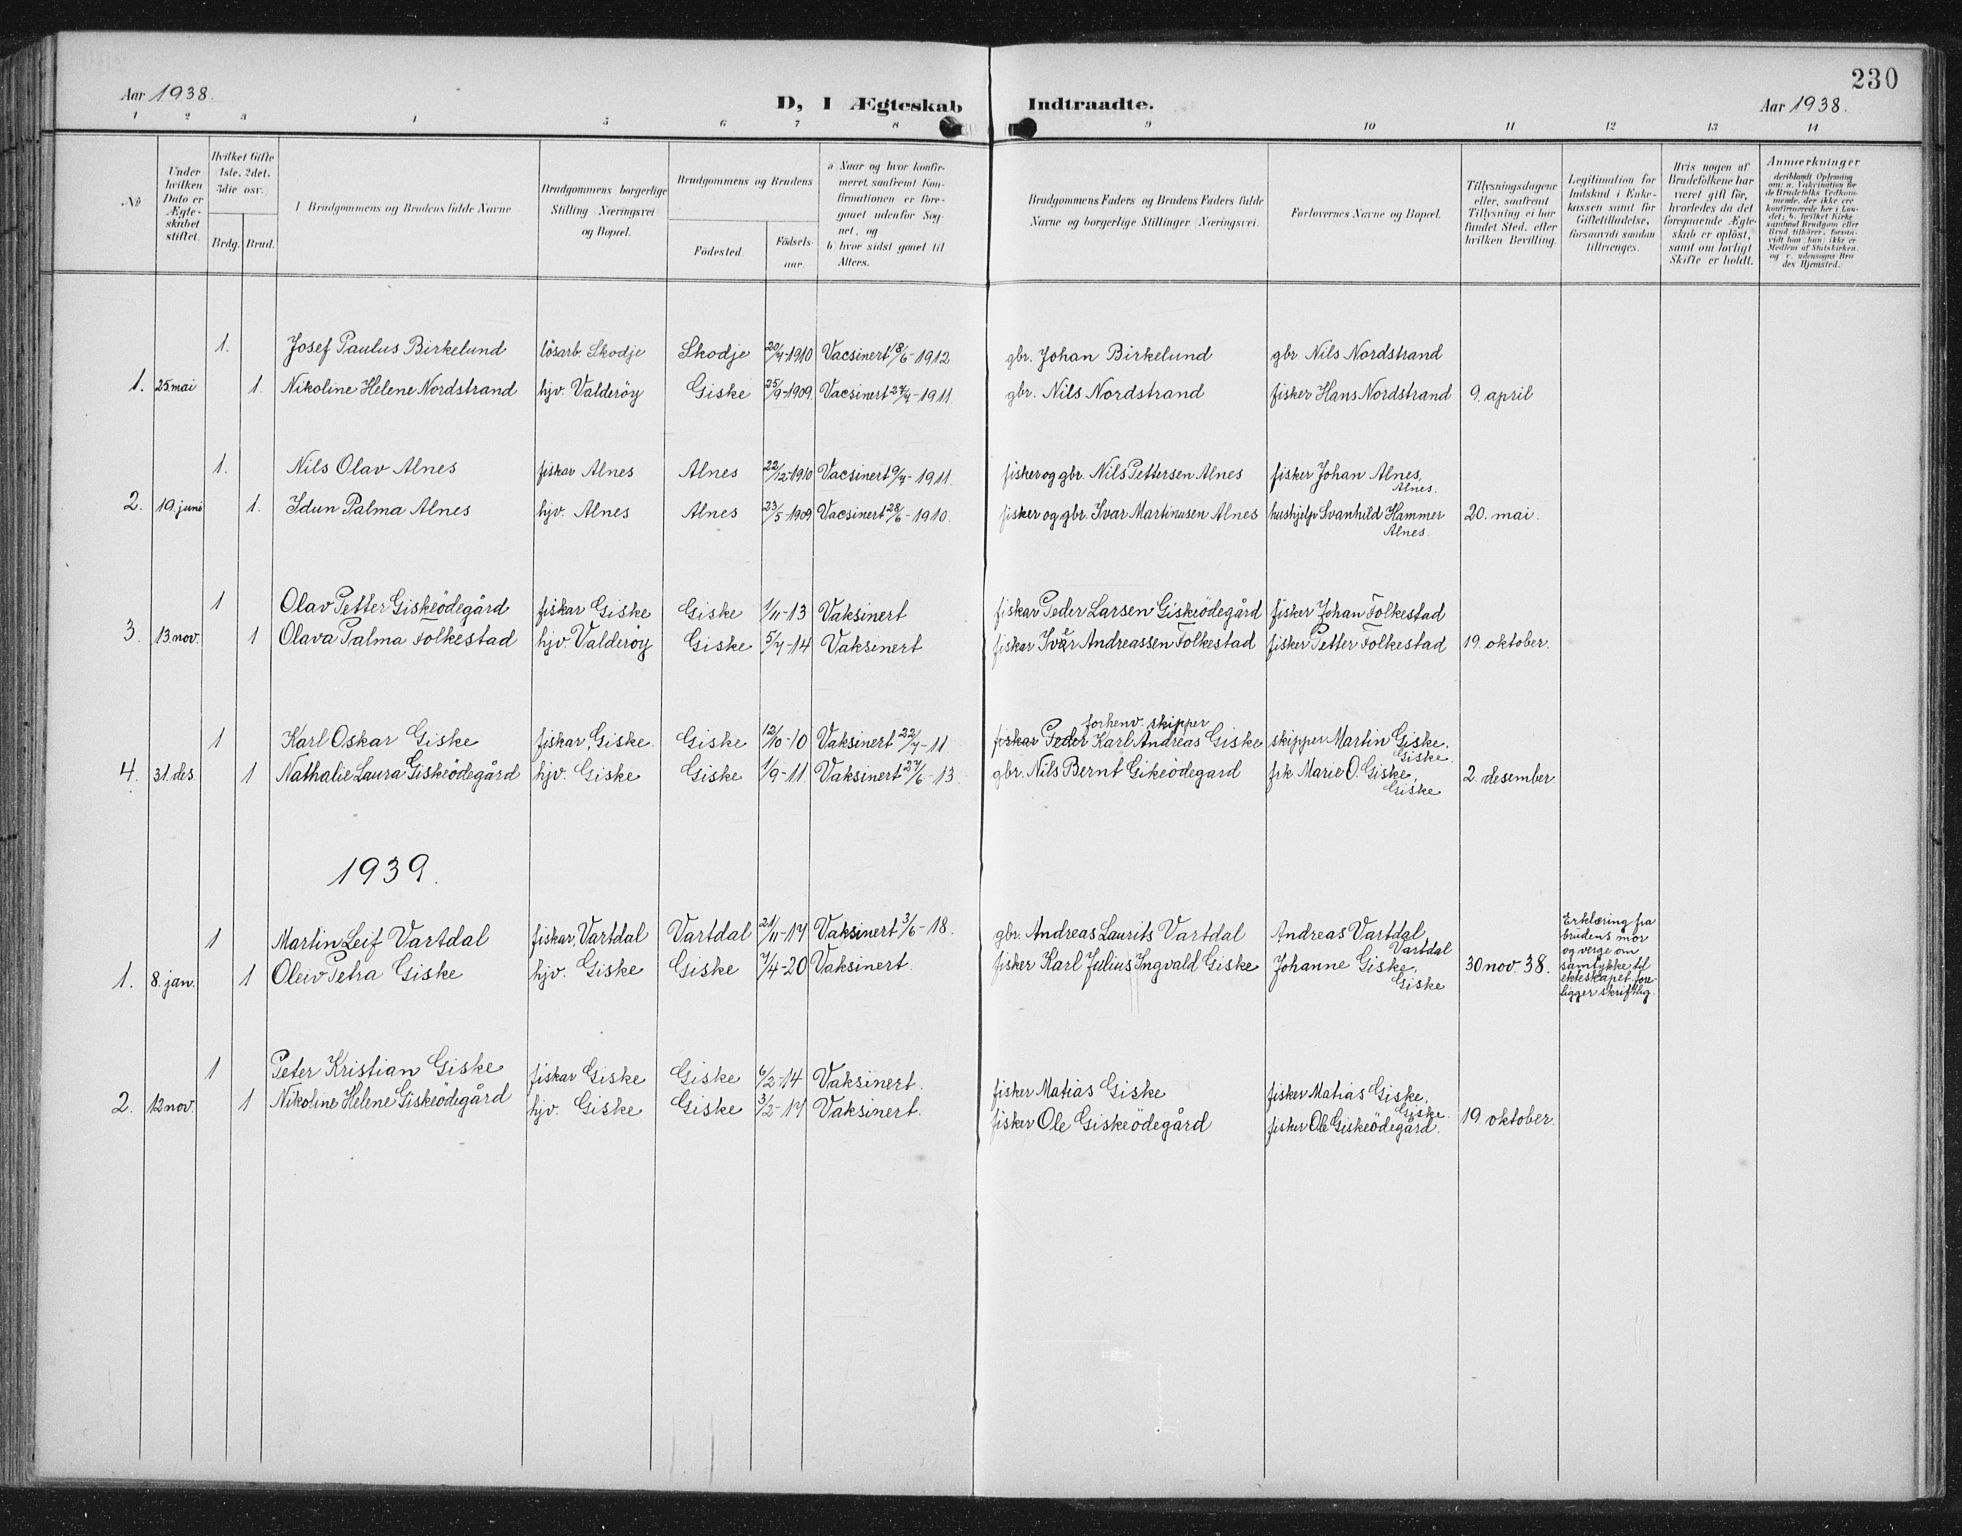 230
Aar 1938.
D, I Ægteskab Indtraadte.
Aar 1938.
1 2 3 4 5 6 7 8 9 10 11 12 13 14
No
Under hvilken Dato er Ægteskabet stiftet.
Hvilket Gifte 1ste, 2det, 3die osv.
Brdg. Brud.
Brudgommens og Brudens fulde Navne
Brudgommens borgerlige Stilling Næringsvei og Bopæl.
Brudgommens og Brudens
Fødested.
Fødselsaar.
a Naar og hvor konfirmeret, saafremt Konfirmationen er foregaaet udenfor Sognet, og
b. hvor sidst gaaet til Alters.
Brudgommens Faders og Brudens Faders fulde Navne og borgerlige Stillinger Næringsvei.
Forlovernes Navne og Bopæl.
Tillysningsdagene eller, saafremt Tillysning ei har fundet Sted, efter hvilken Bevilling.
Legitimation for Indskud i Enkekassen samt for Giftetilladelse, forsaavidt saadan tiltrænges.
Hvis nogen af Brudefolkene har været gift før, hvorledes da det foregaaende Ægteskab er opløst, samt om lovligt Skifte er holdt.
Anmærkninger
1. Josef Paulus Birkelund løsarb Skodje Skodje 20/4-1910 Vacsinert 18/6-1912 gbr. Johan Birkelund gbr. Nils Nordstrand
1. 25 mai 1. Nikoline Helene Nordstrand hjv. Valderöy Giske 25/9-1909 Vacsinert 27/4-1911. gbr. Nils Nordstrand fisker Hans Nordstrand 9. april
1. Nils Olav Alnes fiskar Alnes Alnes 22/12-1910 Vacsinert 9/4-1911. fisker og gbr. Nils Pettersen Alnes fisker Johan Alnes,
Alnes.
2. 19. juni 1. Idun Palma Alnes hjv. Alnes Alnes 23/5-1909 Vacsinert 28/6-1910. fisker og gbr. Ivar Martinusen Alnes hushjelp Svanhild Hammer 20. mai.
Alnes.
1 Olav Petter Giskeödegård fiskar Giske Giske 1/11-13 Vaksinert fiskar Peder Larsen Giskeödegård fisker Johan Folkestad
3. 13 nov. 1 Olava Palma Folkestad hjv. Valderöy Giske 5/7-14 Vaksinert fiskar Iver Andreassen Folkestad fisker Petter Folkestad 19. oktober.
forhenv. skipper
1 Karl Oskar Giske fiskar, Giske. Giske 12/10-10 Vaksinert 22/7-11 fiskar Peder Karl Andreas Giske skipper Martin Giske.
Giske.
4. 31. des. 1 Nathalie Laura Giskeödegård hjv. Giske Giske 1/9-11. Vaksinert 27/6-13. gbr. Nils Bernt Gikeödegard frk Marie O. Giske, 2. desember.
Giske
1939.
1 Martin Leif Vartdal fiskar, Vartdal Vartdal 21/11-17 Vaksinert 3/6-18. gbr. Andreas Laurits Vartdal Andreas Vartdal
Vartdal
1. 8. jan. 1 Oleiv Petra Giske hjv. Giske Giske 7/4-20 Vaksinert fisker Karl Julius Ingvald Giske Johanne Giske, 30 nov. 38.
Giske
Erklæring fra
brudens mor
og verge om
samtykke til
ekteskapet, fore-
ligger skriftlig.
1 Peter Kristian Giske fiskar Giske Giske 6/2-14 Vaksinert. fisker Matias Giske fisker Matias Giske,
Giske.
2. 12 nov. 1 Nikoline Helene Giskeödegård hjv. Giske Giske 3/2-17 Vaksinert. fisker Ole Giskeödegård fisker Ole Giskeödegård. 19. oktober.